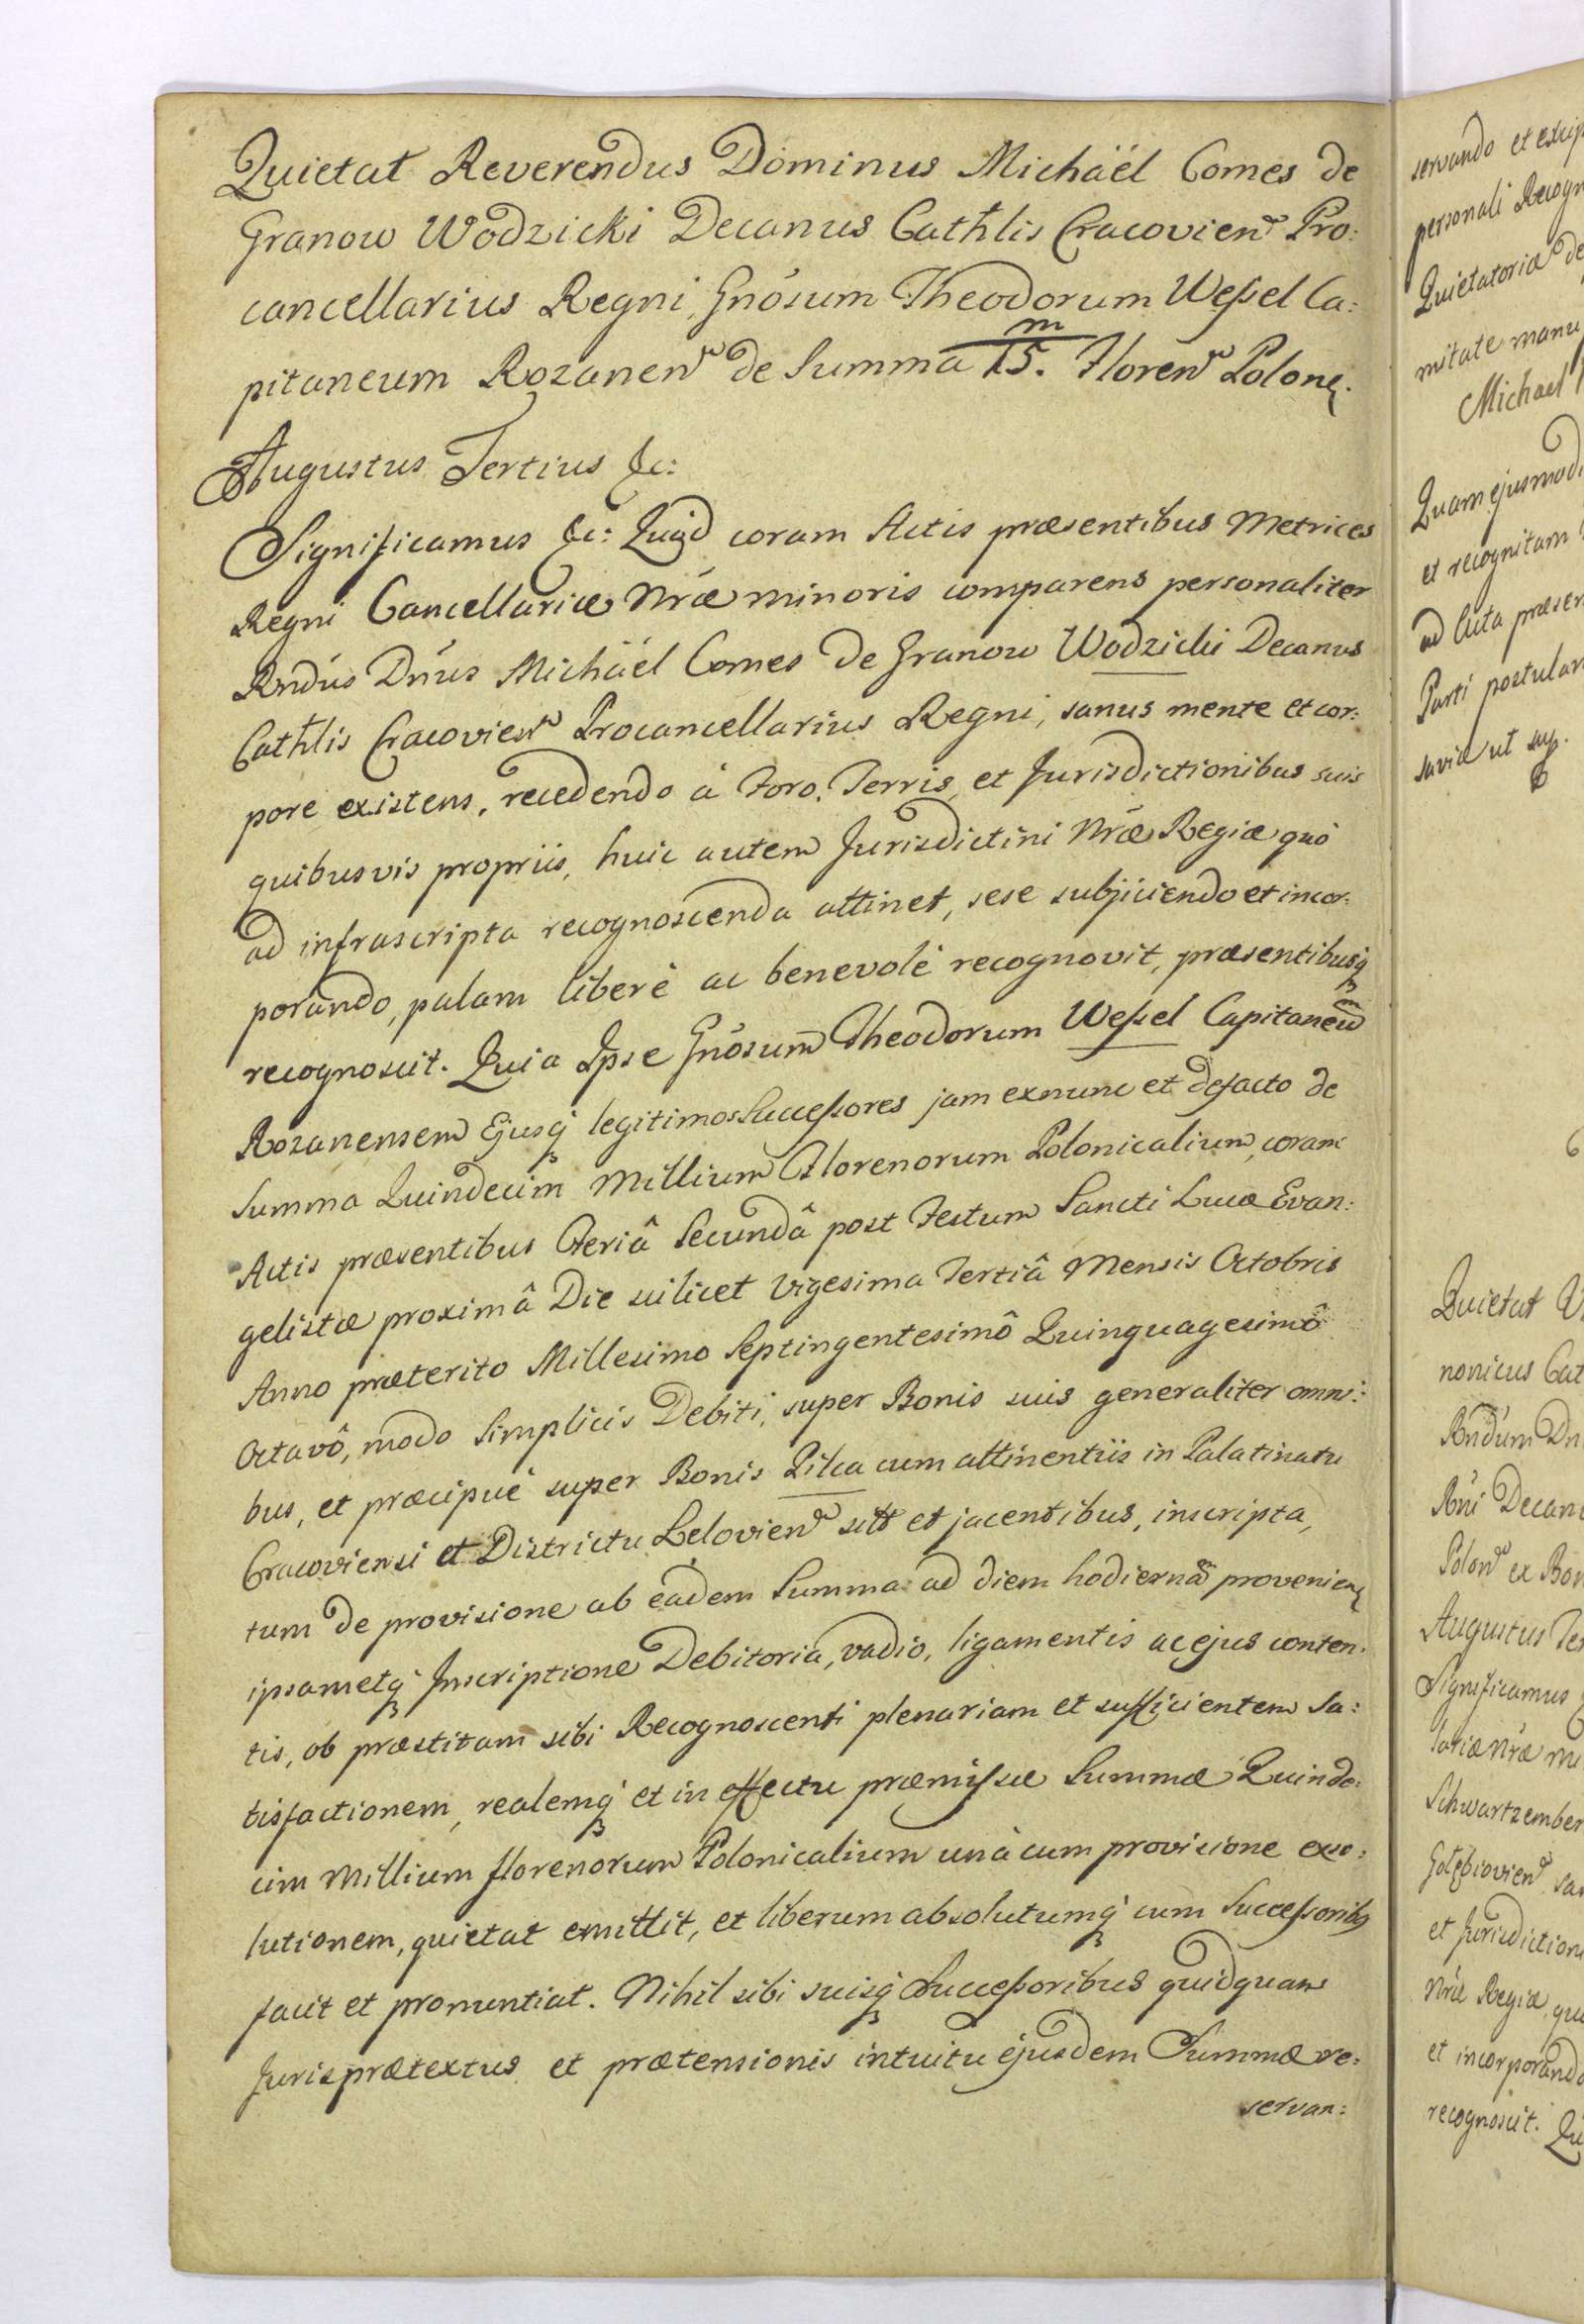 Quietat Reverendus Dominus Michäël Comes de
Granow Wodzicki Decanus Cathlis Cracovien Pro:
cancellarius Regni, Gnósum Theodorum Weßel Ca:
pitaneum Rozanen de Summa 15. m Floren Polon.
Augustus Tertius &c:
Significamus &c: Quid coram Actis præsentibus Metrices
Regni Cancellariæ Nræ minoris comparens personaliter
Rndús Dnús Michäël Comes de Granow Wodzicki Decanus
Cathlis Cracovien Procancellarius Regni, sanus mente et cor:
pore existens, recedendo à Foro, Terris, et Jurisdictionibus suis
quibusvis propriis, huic autem Jurisdictini Nræ Regiæ quò
ad infrascripta recognoscenda attinet, sese subjiciendo et incor:
porando, palam liberè ac benevolè recognovit, præsentibusq
recognoscit. Quia Ipse Gnósum Theodorum Weßel Capitaneū
Rozanensem Ejusq legitimos Succeßores jam exnunc et defacto de
Summa Quindecim Millium Florenorum Polonicalium, coram
Actis præsentibus Feriâ Secundâ post Festum Sancti Lucæ Evan:
gelistæ proximâ Die scilicet Vigesima Tertiâ Mensis Octobris
Anno præterito Millesimo Septingentesimô Quinquagesimô
Octavô, modo Simplicis Debiti, super Bonis suis generaliter omni:
bus, et præcipuè super Bonis Pilca cum attinentiis in Palatinatu
Cracoviensi et Districtu Lelovien sitt et jacentibus, inscripta,
tum de provisione ab eâdem Summa ad diem hodiernā provenien
ipsametq Inscriptione Debitoria, vadio, ligamentis ac ejus conten:
tis, ob præstitam sibi Recognoscenti plenariam et sufficientem Sa:
tisfactionem, realemq et in effectu præmißæ Summæ Quinde:
cim Millium florenorum Polonicalium unà cum provisione exso:
lutionem, quietat emittit, et liberum absolutumq cum Succeßoribq
facit et pronuntiat. Nihil sibi suisq Succeßoribus quidquam
Juris prætextus et prætensionis intuitu ejusdem Summæ re:
servan:
servando et
personali
Quietatoriæ de
mitate manu
Michael
Quam ejusmodi
et recognitam
ad Acta
Parti
saviæ ut sup.
Quietat
nonicus Cat
Rndúm
Rńi Decani
Polon ex Bon
Augustus Ter
Significamus
lariæ Nræ mi
Schwartzember
Gołębiovien
et Jurisdiction
Nræ Regiæ
et incorporando
recognoscit.